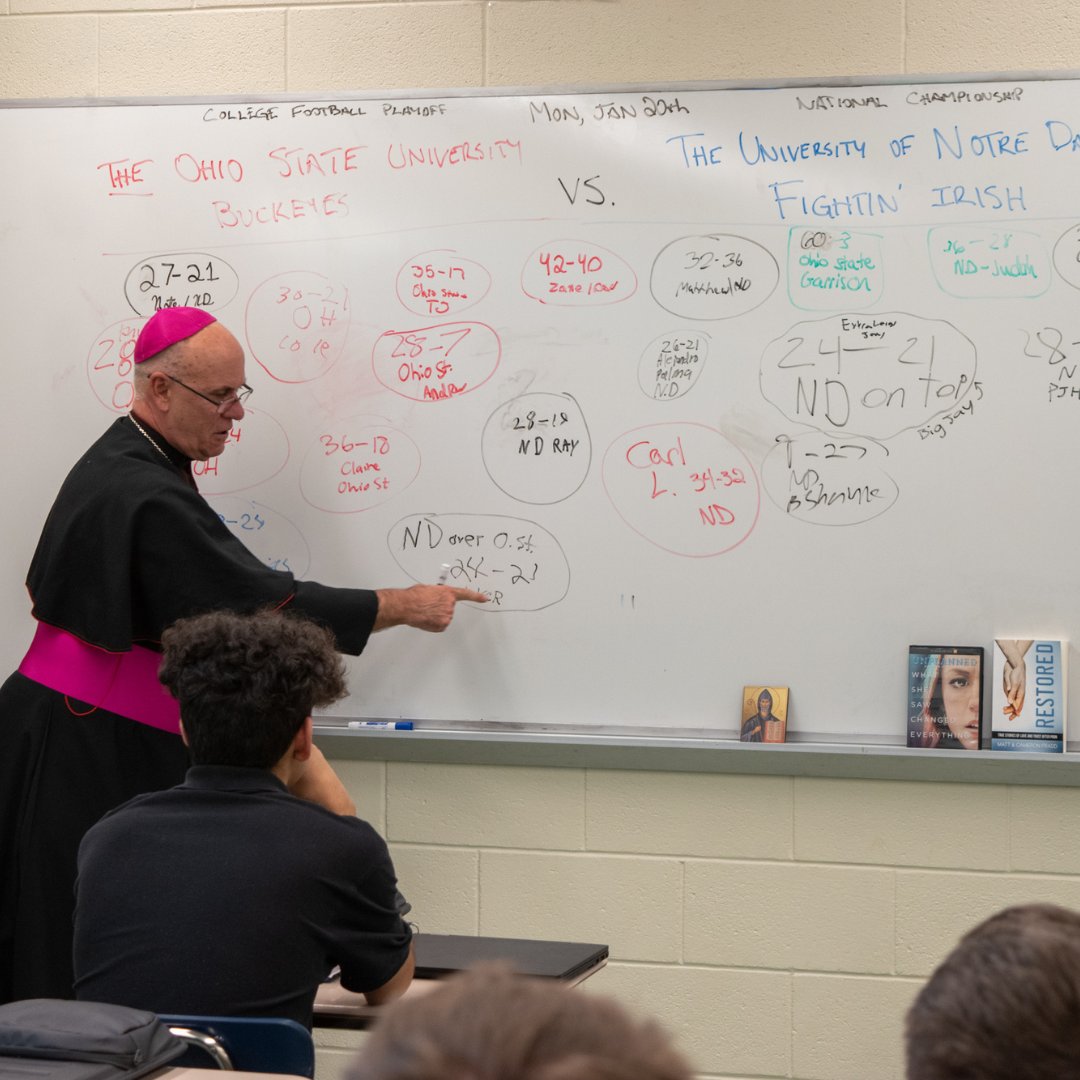 COLLEGE FOOTBALL PLAYOFF
MON, JAN 20th
NATIONAL CHAMPIONSHIP
THE OHIO STATE UNIVERSITY
BUCKEYES
VS.
THE UNIVERSITY OF NOTRE DA
FIGHTIN' IRISH
27-21
Nate/ND
30-21
OH
35-17
Ohio State
TJ
42-40
Zane/
32-36
Matthew ND
60-3
Ohio state
Garrison
36-28
ND-Judith
28-7
Ohio St.
Andrew
26-21
Alejandro
Palma
N.D
Extra
24-21
ND on top
Big Jay
28-
N
PJH
36-18
Claire
Ohio St
28-18
ND RAY
Carl
L. 34-32
ND
-27
ND
OH
-25
ND over O. St.
24-21
UNPLANNED
WHAT
SHE
SAW
CHANGED
EVERYTHING
RESTORED